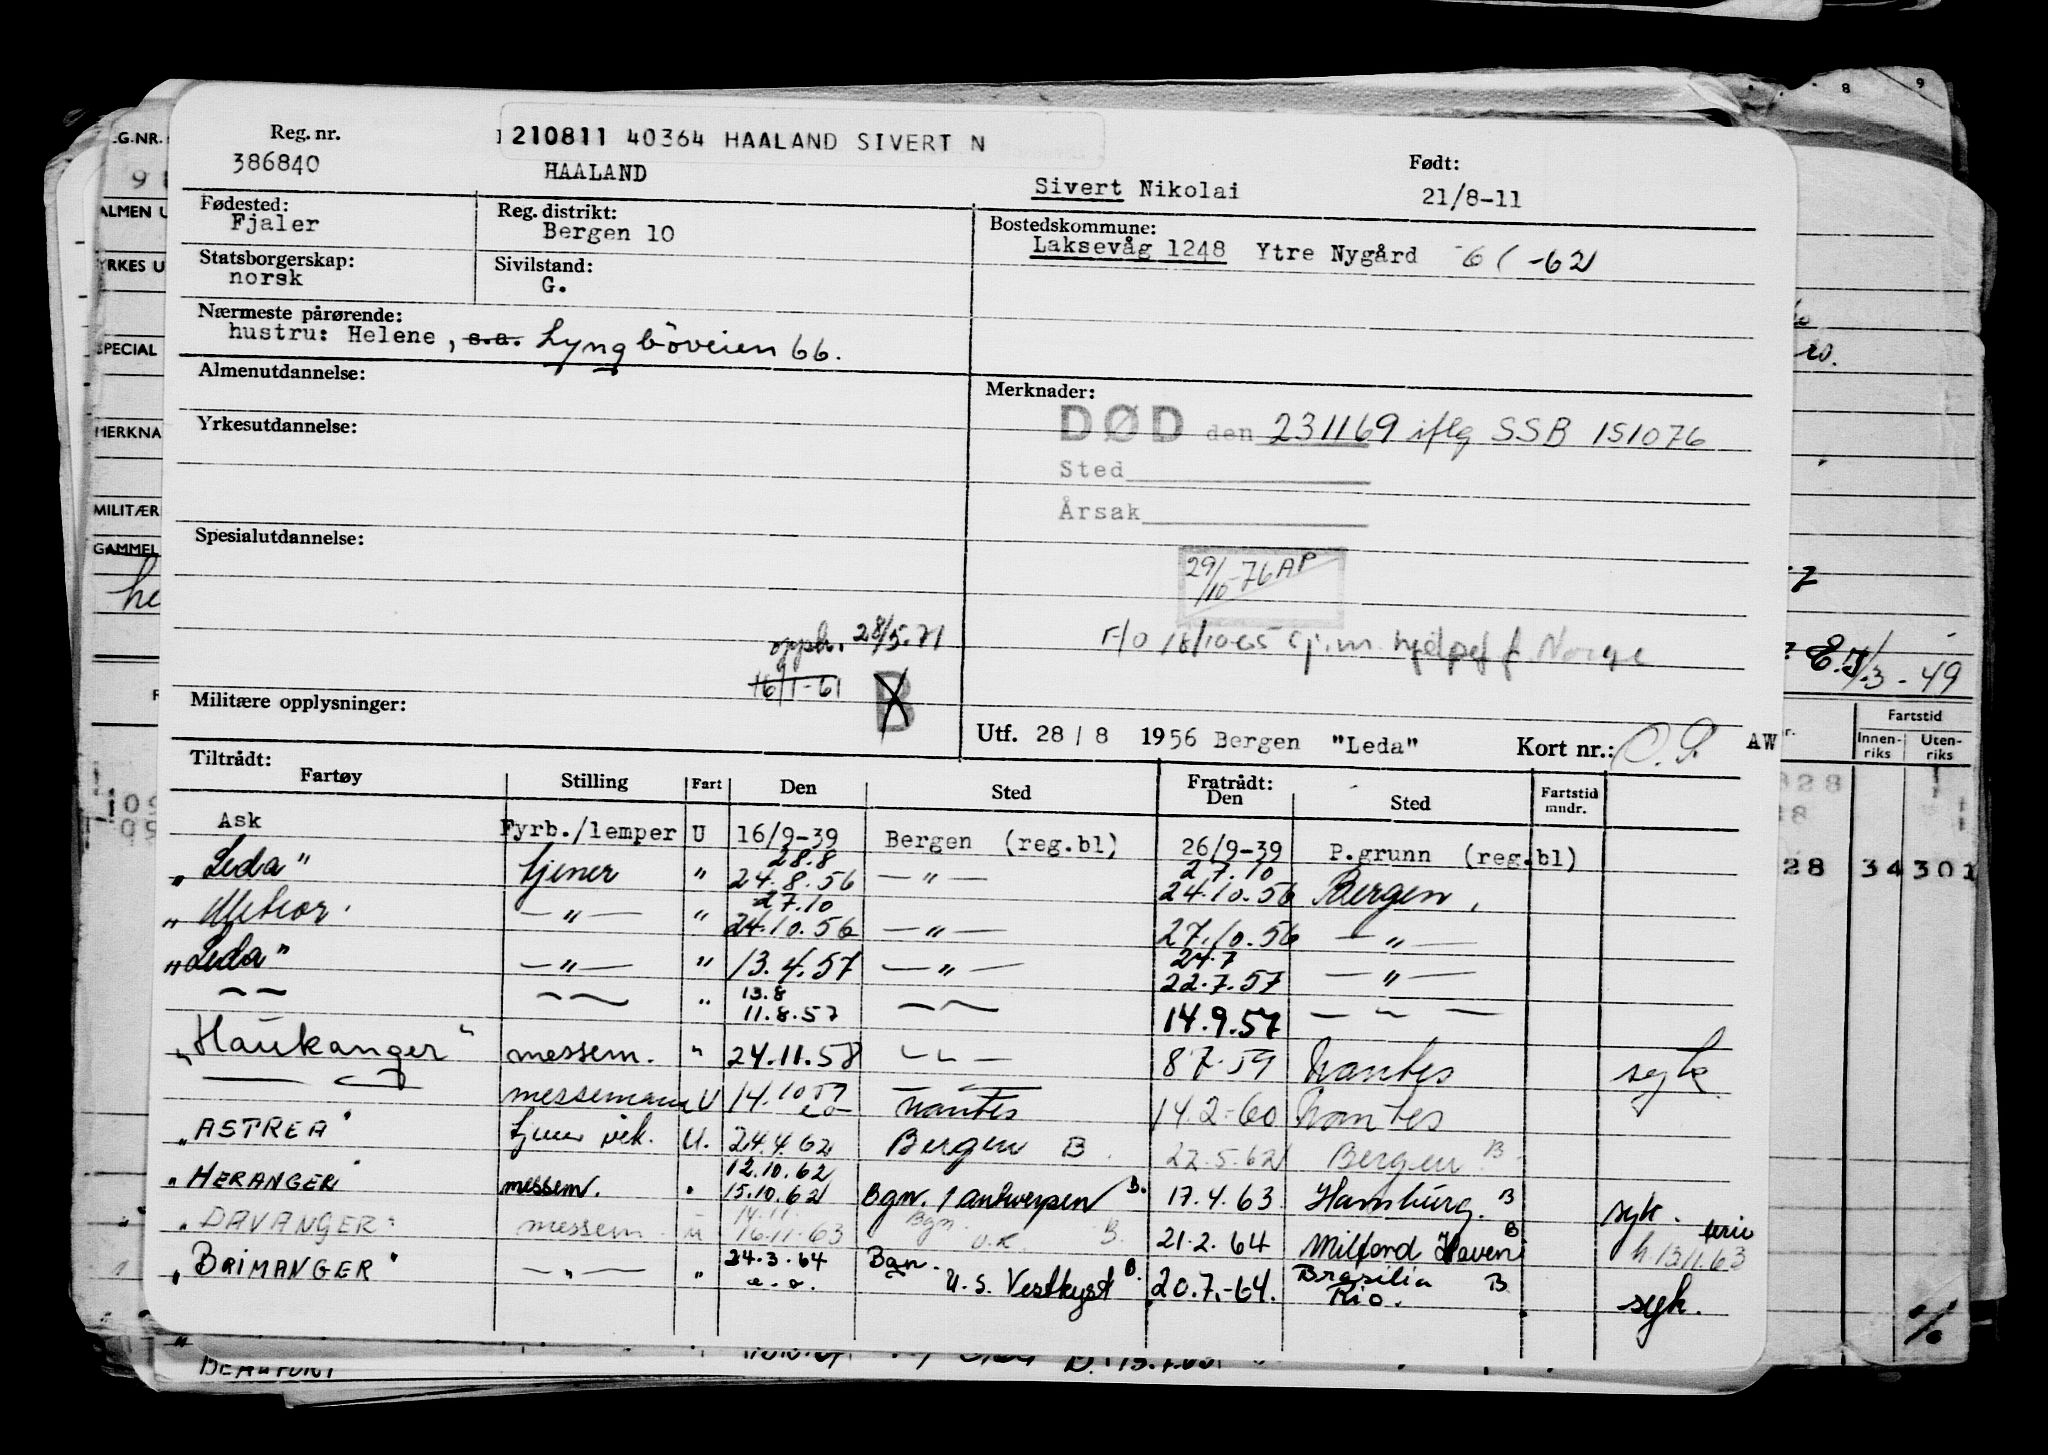 Reg. nr. 386840
210811 40364 HAALAND SIVERT N
HAALAND Sivert Nikolai
Født: 21/8-11
Fødested: Fjaler
Reg. distrikt: Bergen 10
Bostedskommune: Laksevåg 1248 Ytre Nygård -62
Statsborgerskap: norsk
Sivilstand: G.
Nærmeste pårørende:
hustru: Helene, s.a. Lyngbøveien 66.
Almenutdannelse:
Yrkesutdannelse:
Spesialutdannelse:
Merknader:
DØD den 231169 iflg SSB 151076
Sted
Årsak
29/10-76 AP
F/O 18/10-65
Norge
opph. 28/5.71
16/1-61
B
Militære opplysninger:
Utf. 28/8 1956 Bergen "Leda" Kort nr.: AW
Tiltrådt: Fratrådt:
Fartøy Stilling Fart Den Sted Den Sted Fartstid mndr.
Ask Fyrb./lemper U 16/9-39 Bergen (reg.bl) 26/9-39 P.grunn (reg.bl)
"Leda" tjener " 28.8 24.8.56 — " — 27.10 24.10.56 Bergen,
"Meteor — " — " 27.10 24.10.56 — " — 27.10.56 — " —
"Leda" — " — " 13.4.57 — " — 24.7 22.7.57 — " —
— — — — " 13.8 11.8.57 — — 14.9.57 — — —
"Haukanger" messem. " 24.11.58 — — 8.7.59 Nantes syk
messemann U 14.10.59 Nantes 14.2-60 Nantes
"ASTREA" tjener vik. U. 24.4.62 Bergen B 22.5.62 Bergen B
"HERANGER" messem. " 12.10.62 15.10.62 Bgn. / Antwerpen B. 17.4.63 Hamburg. B syk.
"DAVANGER" messem u 14.11 16.11.63 Bgn. U.K B. 21.2.64 Milford Haven B ferie h 13/1.63
"BRIMANGER" — " — " 24.3.64 e.o. Bgn. U.S. Vestkyst B. 20.7.-64. Brasilia Rio. B syk.
EG.NR.
ALMEN U
YRKES U
SPECIAL
MERKNA
MILITÆR
GAMMEL
he
8 9
3 - 49
Fartstid
Innen-riks Uten-riks
28 34 301
BEAUFORT